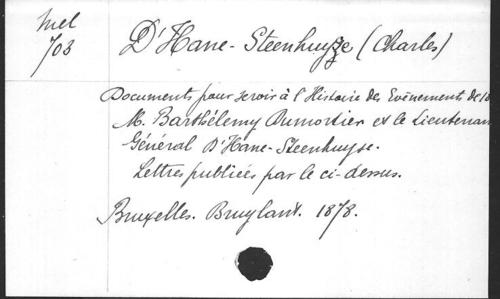 Mel
703
D'Hane-Steenhuyze (Charles)
Documents pour servir à l'Histoire des Evènements de 18
M. Barthélemy Dumortier et le Lieutenan
Général D'Hane-Steenhuyse.
Lettres publiées par le ci-dessus.
Bruxelles. Bruylant. 1878.